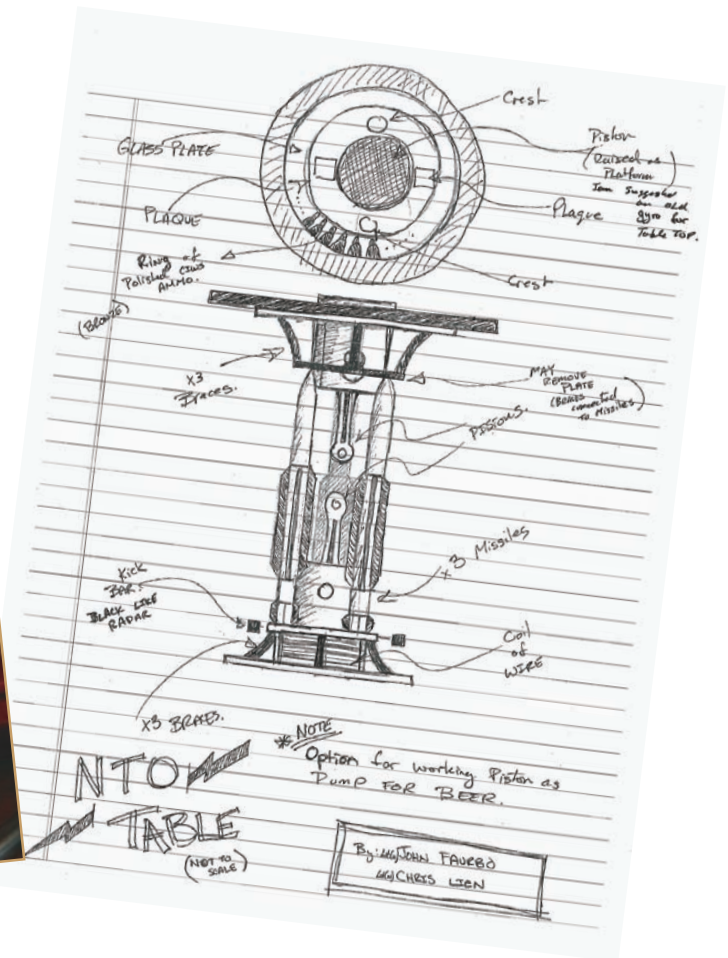 Crest
GLASS PLATE
Piston
(Raised as
Platform
Suggested
an old
gyro for
Table TOP.
PLAQUE
Plaque
Ring of
Polished CIWS
AMMO.
Crest
(BRONZE)
x3
Braces.
MAY
REMOVE
PLATE
(BRAKES
connected
TO MISSILES)
PISTONS.
x3 Missiles
Kick
BAR.
BLACK LIKE
RADAR
Coil
of
WIRE
x3 BRAKES.
* NOTE
Option for working Piston as
Pump FOR BEER.
NTO
TABLE
(NOT TO
SCALE)
By: JOHN FAURBO
CHRIS LIEN